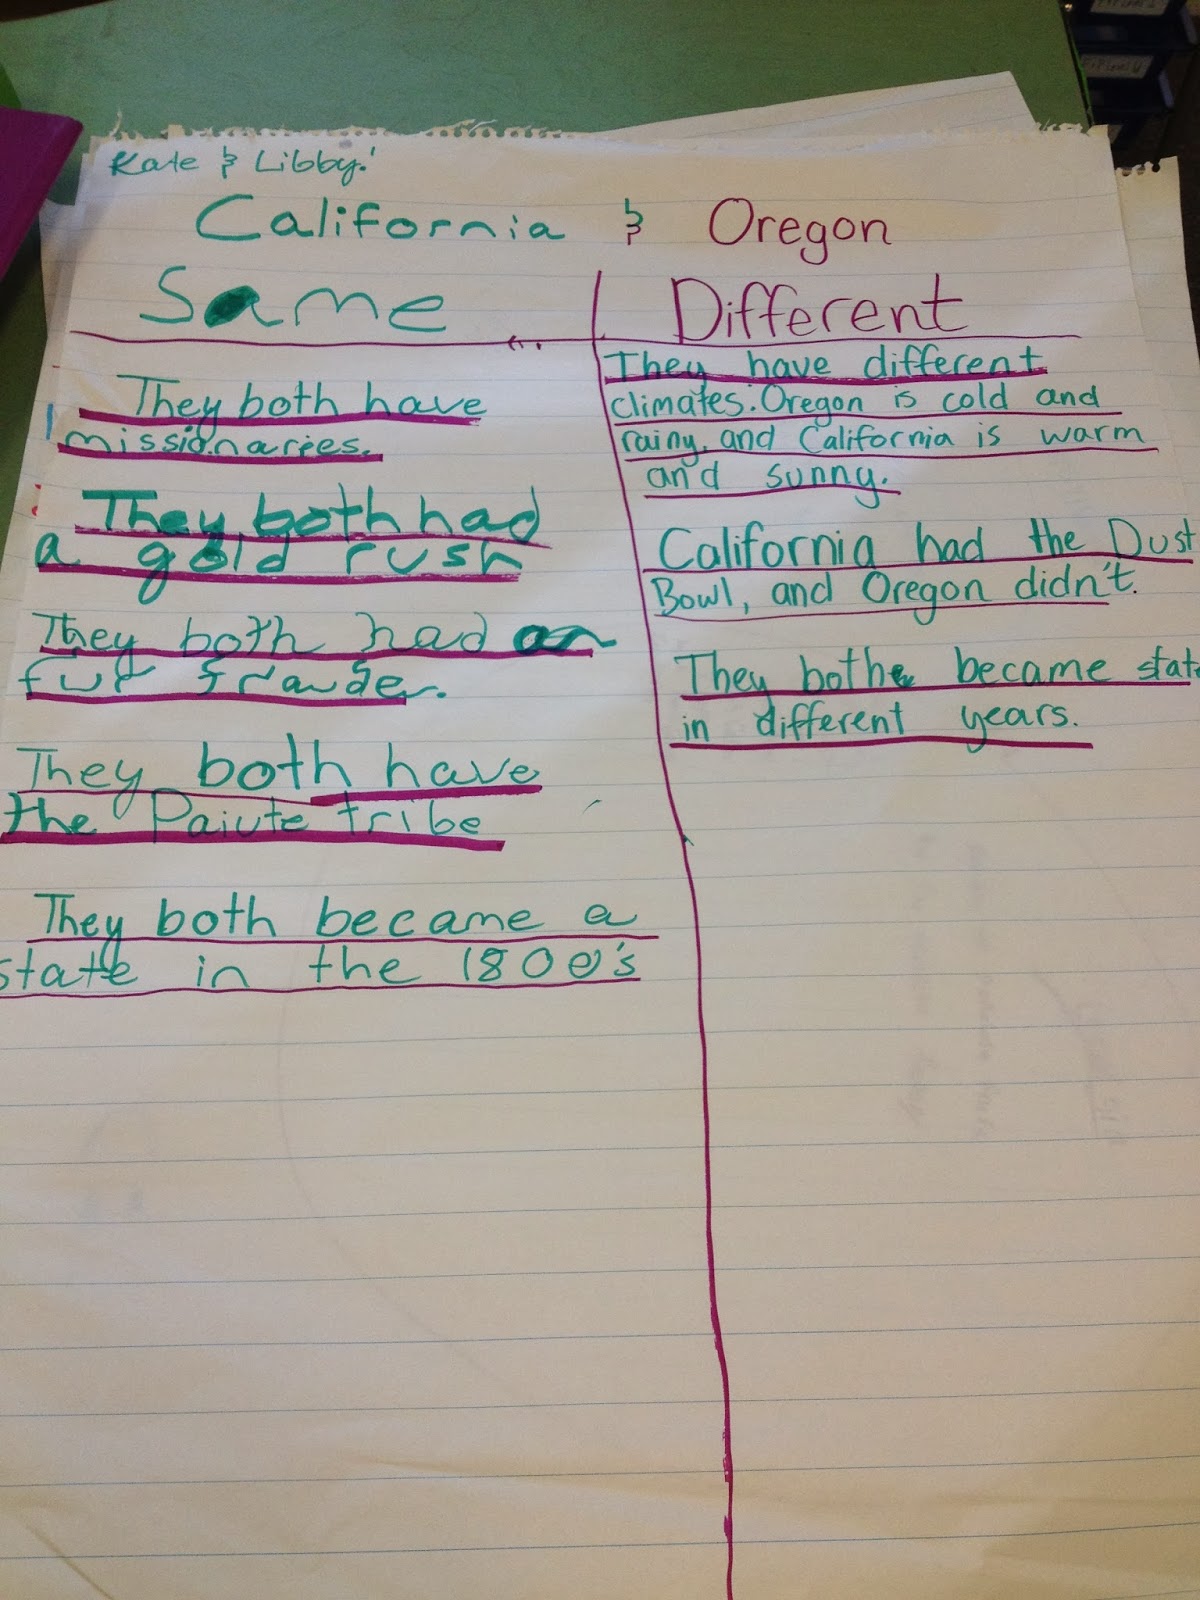 Kate & Libby!
California & Oregon
Same
They both have
missionaries.
They both had
a gold rush
They both had
fur trauder.
They both have
the Paiute tribe
They both became a
state in the 1800's
Different
They have different
climates. Oregon is cold and
rainy, and California is warm
and sunny.
California had the Dust
Bowl, and Oregon didn't.
They bothe became stat
in different years.